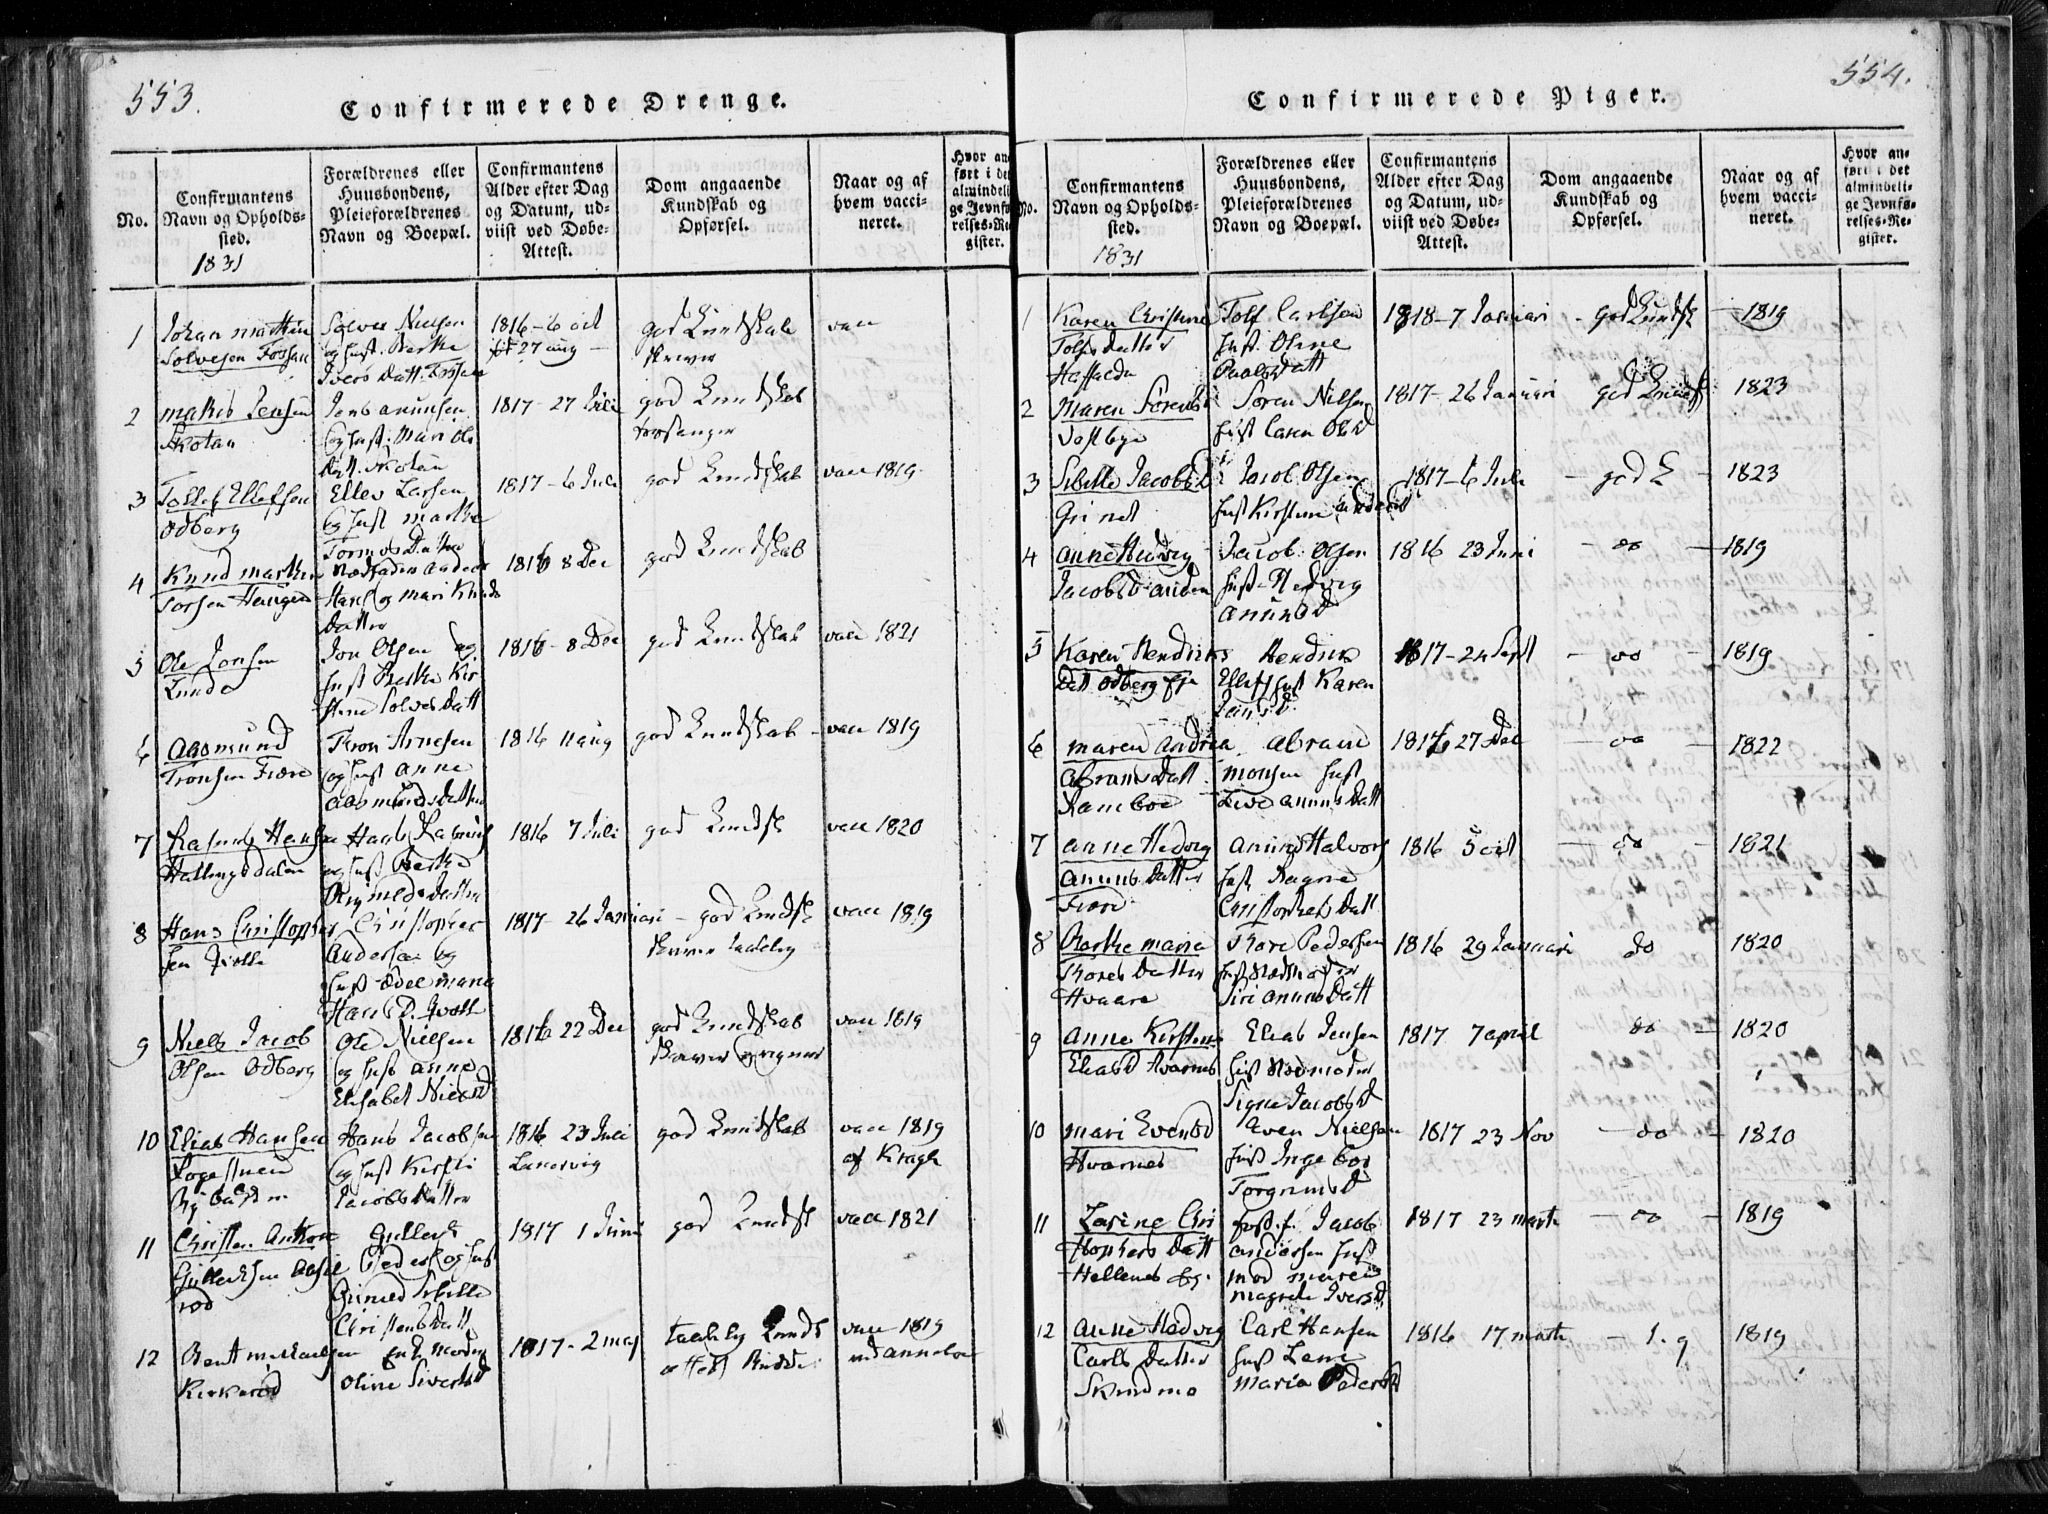 553.
Confirmerede Drenge.
No.
Confirmantens Navn og Opholdssted.
1831
Forældrenes eller Huusbondens, Pleieforældrenes Navn og Boepæl.
Confirmantens Alder efter Dag og Datum, udviist ved Døbe-Attest.
Dom angaaende Kundskab og Opførsel.
Naar og af hvem vaccineret.
Hvor anført i det almindelige Jevnførelses-Register.
1
Johan
Solvesen Fossan
Solver Nielsen
og Hust.
Ivers Datt.
1816-6 oct
27 aug
god Kundskab
vacc
2
Jensen
Skotan
Jens anunsen
og Hust. Mari Ols
Datt. Skotan
1817-27 Juli
god Kundskab
3
Tollef Ellefsen
Odberg
Ellev Larsen
og Hust Marthe
Tormos Datter
1817-6 Juli
god Kundskab
vacc 1819
4
Knud
Haugen
og Mari Knuds
Datter
1816 8 Dec
god Kundskab
5
Ole Jonsen
Lunde
Jon Olsen og
Hust Berthe Kir
stine Solves Datt
1816-8 Dec
god Kundskab
vacc 1821
6
Aasmund
Tronsen Fiære
Tron Arnesen
og Hust Anne
Aasmunds datter
1816 11 aug
god Kundskab
vacc 1819
7
Rasmus Hansen
Hallingsdalen
Hans Rasmus
og Hust Berthe
Datter
1816 7 Juli
god Kundsk
vacc 1820
8
Hans Christopher
sen
Christopher
Andersen og
Hust Edel Maria
Hans D.
1817-26 Januari
god Kundsk
vacc 1819
9
Niels Jacob
Olsen Odberg
Ole Nielsen
og Hust Anne
Elisabet Niels D
1816 22 Dec
god Kundskab
vacc 1819
10
Elias Hansen
Hans Jacobsen
og Hust Kirsti
Jacobs Datter
1816 23 Juni
Laurvig
god Kundskab
vacc 1819
af Kragh
11
Christen Anthon
Gullechsen
rød
Gullech
Peders og Hust
Sibille
Christens Datt
1817 1 Juni
god Kundsk
vacc 1821
12
Bent Michaelsen
Kirkerød
Enke Moder
Oline Siverts D
1817-2 maj
taalelig Kundsk
vacc 1819
554.
Confirmerede Piger.
No.
Confirmantens Navn og Opholdssted.
1831
Forældrenes eller Huusbondens, Pleieforældrenes Navn og Boepæl.
Confirmantens Alder efter Dag og Datum, udviist ved Døbe-Attest.
Dom angaaende Kundskab og Opførsel.
Naar og af hvem vaccineret.
Hvor anført i det almindelige Jevnførelses-Register.
1
Karen Christine
Tolfs datter
Tolf Carlsen
Hust. Oline
Pauls Datt
1818-7 Januari
god Kundsk
1819
2
Maren Sørens
Vestbye
Søren Nilsen
Hust Caren Ols D
1817-26 Januari
god Kundsk
1823
3
Sibille Jacobs D
Grinet
Jacob Olsen
Hust Kirstine Anders D
1817-6 Juli
god K
1823
4
Anne Hedvig
Jacobs D
Jacob Olsen
Hust Hedvig
Anuns D
1816 23 Juni
do
1819
5
Karen Hendriks
Datt Odberg eje
Hendrik
Ellefs Hust Karen
Lars D.
1817-24 Sept
do
1819
6
Maren Andrea
Abrams Datt
Ramboe
Abram
Monsen Hust
Live Anuns Datt
1816 27 Dec
do
1822
7
Anne Hedvig
Anuns Datter
Fiære
Anund Halvors
Hust Ragne
Christophers Datt
1816 5 oct
do
1821
8
Berthe Marie
Thores Datter
Hvaare
Thore Pedersen
Siri Anuns Datt
1816 29 Januari
do
1820
9
Anne Kirstine
Elias D Hvarnes
Elias Jensen
Signe Jacobs D
1817 7 april
do
1820
10
Mari Evens D
Hvarnes
Even Nielsen
Hust Ingebor
Torgrims D
1817 23 Nov
do
1820
11
Lasine Chri
stophers Datt
Hellenes eje.
Fost. f. Jacob
Andersen Hust
mod Maren
Magrete Ivers D
1817 23 marts
do
1819
12
Anne Hedvig
Carls Datter
Skindmo
Carl Hansen
Hust Lene
Maria Peders D
1816 17 marts
1819